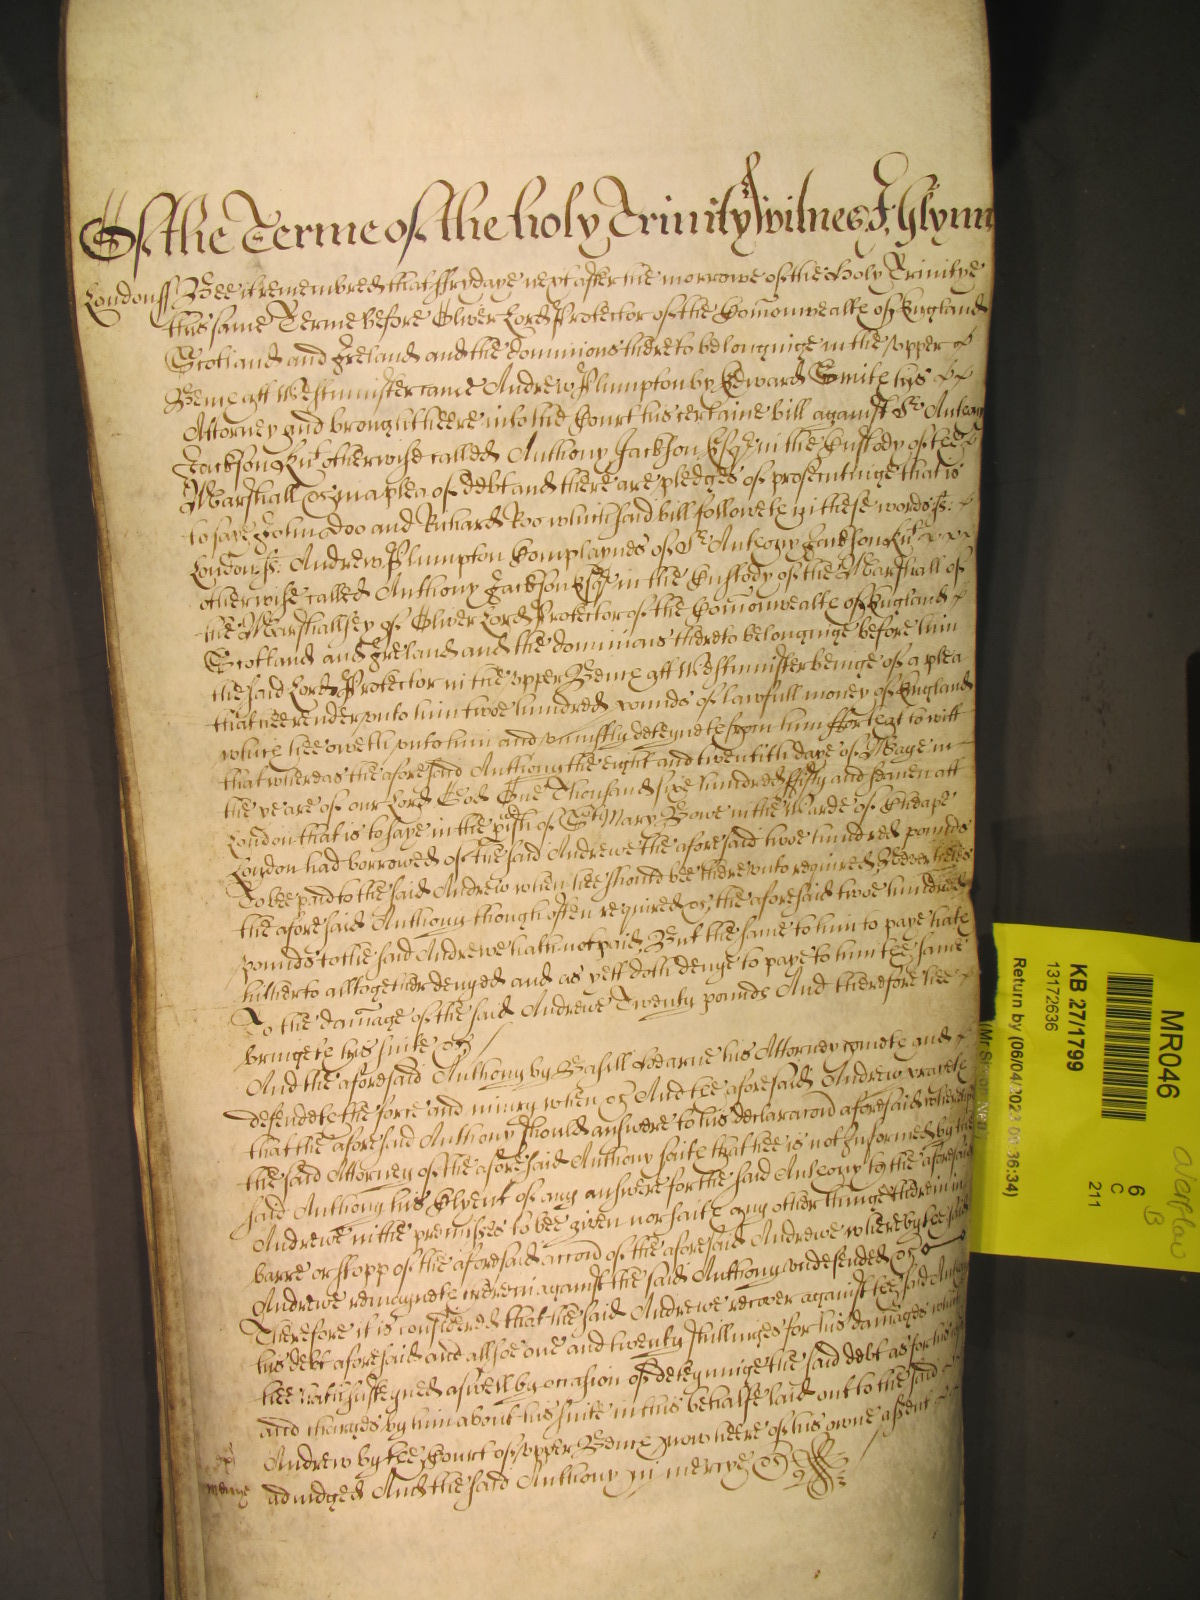 Of the Terme of the holy Trinity witnes J. Glynn
London ss Bee it remembred that ffrydaye next after the morrowe of the Holy Trinitye
this same Terme before Oliver Lord Protector of the Comonwealth of England
Scotland and Ireland and the dominions thereto belonginge in the upper
Bench att Westminster came Andrew Plumpton by Edward Smith his
Attorney and brought heere into the Court his certaine bill against Sr Anthony
Jackson Knt otherwise called Anthony Jackson Esqr in the Custody of the
Marshall &c in a plea of debt and there are pledges of prosecutinge that is
to saye John doo and Richard Roo which said bill followeth in these words ss.
London ss. Andrew Plumpton Complaynes of Sr Anthony Jackson Knt
otherwise called Anthony Jackson Esqr in the Custody of the Marshall of
the Marshallsey of Oliver Lord Protector of the Comonwealth of England
Scotland and Ireland and the dominions thereto belonginge before him
the said Lord Protector in the upper Bench att Westminster beinge of a plea
that hee render unto him twoe hundred pounds of lawfull money of England
which hee oweth unto him and uniustly deteyneth from him ffor that to witt
that whereas the aforesaid Anthony the eight and twentith daye of Maye in
the yeare of our Lord God One Thousand six hundred ffifty and seaven att
London that is to saye in the pish of St Mary Bowe in the Warde of Cheape
London had borrowed of the said Andrewe the aforesaid twoe hundred pounds
To bee paid to the said Andrew when hee should bee thereunto required Neverthelesse
the aforesaid Anthony though often required &c the aforesaid twoe hundred
pounds to the said Andrewe hath not paid But the same to him to paye hath
hitherto alltogether denyed and as yett doth denye to paye to him the same
To the damage of the said Andrewe Twenty pounds And therefore hee
bringeth his suite &c
And the aforesaid Anthony by Basill Hearne his Attorney cometh and
defendeth the force and iniury when &c And the aforesaid Andrew prayeth
that the aforesaid Anthony should answere to his declaracon aforesaid whereupon
the said Attorney of the aforesaid Anthony saith that hee is not Informed by the
said Anthony his Clyent of any answere for the said Anthony to the aforesaid
Andrewe in the premisses to bee given nor saith any other thinge therein in
barre or stopp of the aforesaid accon of the aforesaid Andrewe whereby the said
Andrewe remayneth therein against the said Anthony undefended &c
Therefore it is considered that the said Andrewe recover against the said Anthony
his debt aforesaid and allsoe one and twenty shillinges for his damages which
hee hath susteyned aswell by occasion of deteyninge the said debt as for his
and charges by him about his suite in this behalfe laid out to the said
Andrew by the Court of upper Bench now heere of his owne assent
adiudged And the said Anthony in mercy &c
mercye
MR046
6
C
211
KB 27/1799
13172636
Return by (06/04/2023 09:36:34)
overflow
B